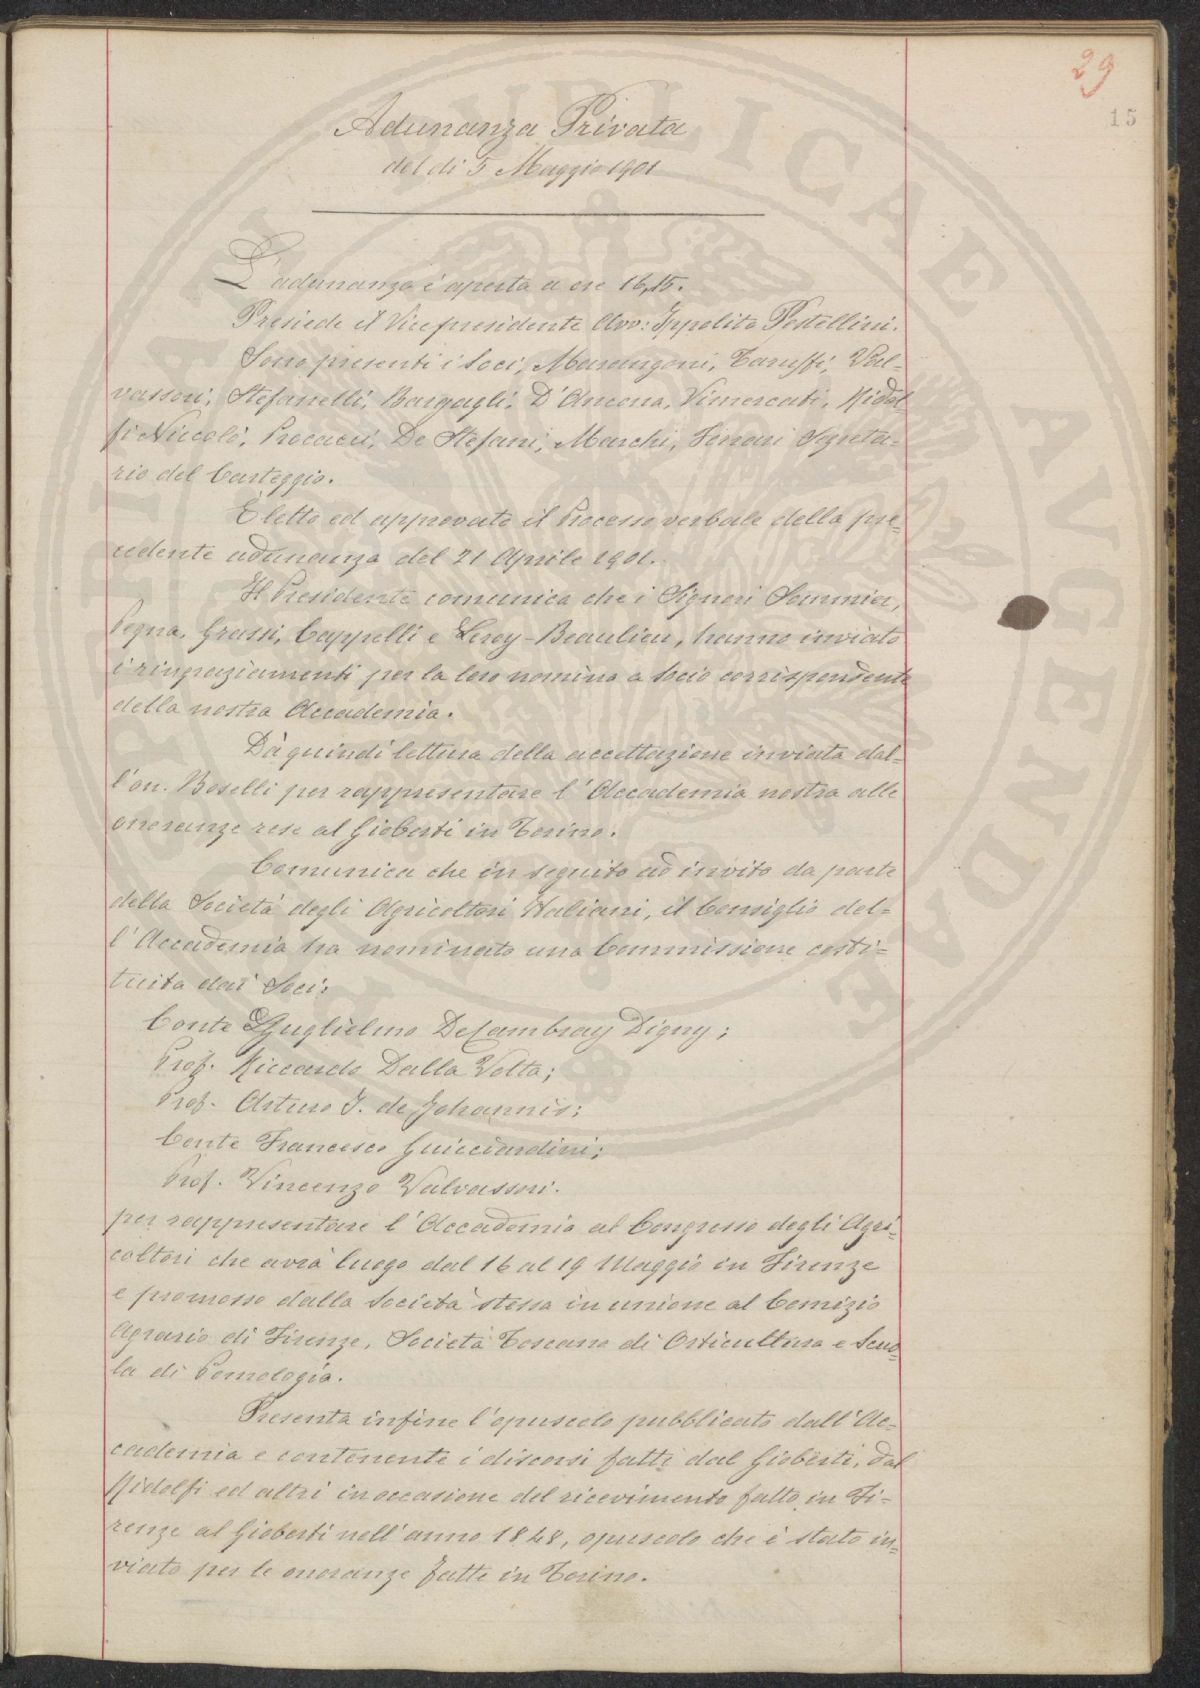 29
15
Adunanza Privata
del dì 5 Maggio 1901
L'adunanza è aperta a ore 16,15.
Presiede il Vicepresidente Avv: Ippolito Pestellini.
Sono presenti i Soci, Marangoni, Taruffi, Val=
vassori, Stefanelli, Bargagli, D'Ancona, Vimercati, Ridol
fi Niccolò, Procacci, De Stefani, Marchi, Ferrari Segreta=
rio del Carteggio.
È letto ed approvato il Processo verbale della pre=
cedente adunanza del 21 Aprile 1901.
Il Presidente comunica che i Signori Sommier,
Pegna, Grassi, Cappelli e Leroy-Beaulieu, hanno inviato
i ringraziamenti per la loro nomina a Socio corrispondente
della nostra Accademia.
Dà quindi lettura della accettazione inviata dal=
l'on. Boselli per rappresentare l'Accademia nostra alle
onoranze rese al Gioberti in Torino.
Comunica che in seguito ad invito da parte
della Società degli Agricoltori Italiani, il Consiglio del=
l'Accademia ha nominato una Commissione costi=
tuita dai Soci:
Conte Guglielmo De Cambray Digny;
Prof. Riccardo Dalla Volta;
Prof. Arturo J. de Johannis;
Conte Francesco Guicciardini;
Prof. Vincenzo Valvassori.
per rappresentare l'Accademia al Congresso degli Agri=
coltori che avrà luogo dal 16 al 19 Maggio in Firenze
e promosso dalla Società stessa in unione al Comizio
Agrario di Firenze, Società Toscana di Orticultura e Scuo=
la di Pomologia.
Presenta infine l'opuscolo pubblicato dall'Ac=
cademia e contenente i discorsi fatti dal Gioberti, dal
Ridolfi ed altri in occasione del ricevimento fatto in Fi=
renze al Gioberti nell'anno 1848, opuscolo che è stato in=
viato per le onoranze fatte in Torino.